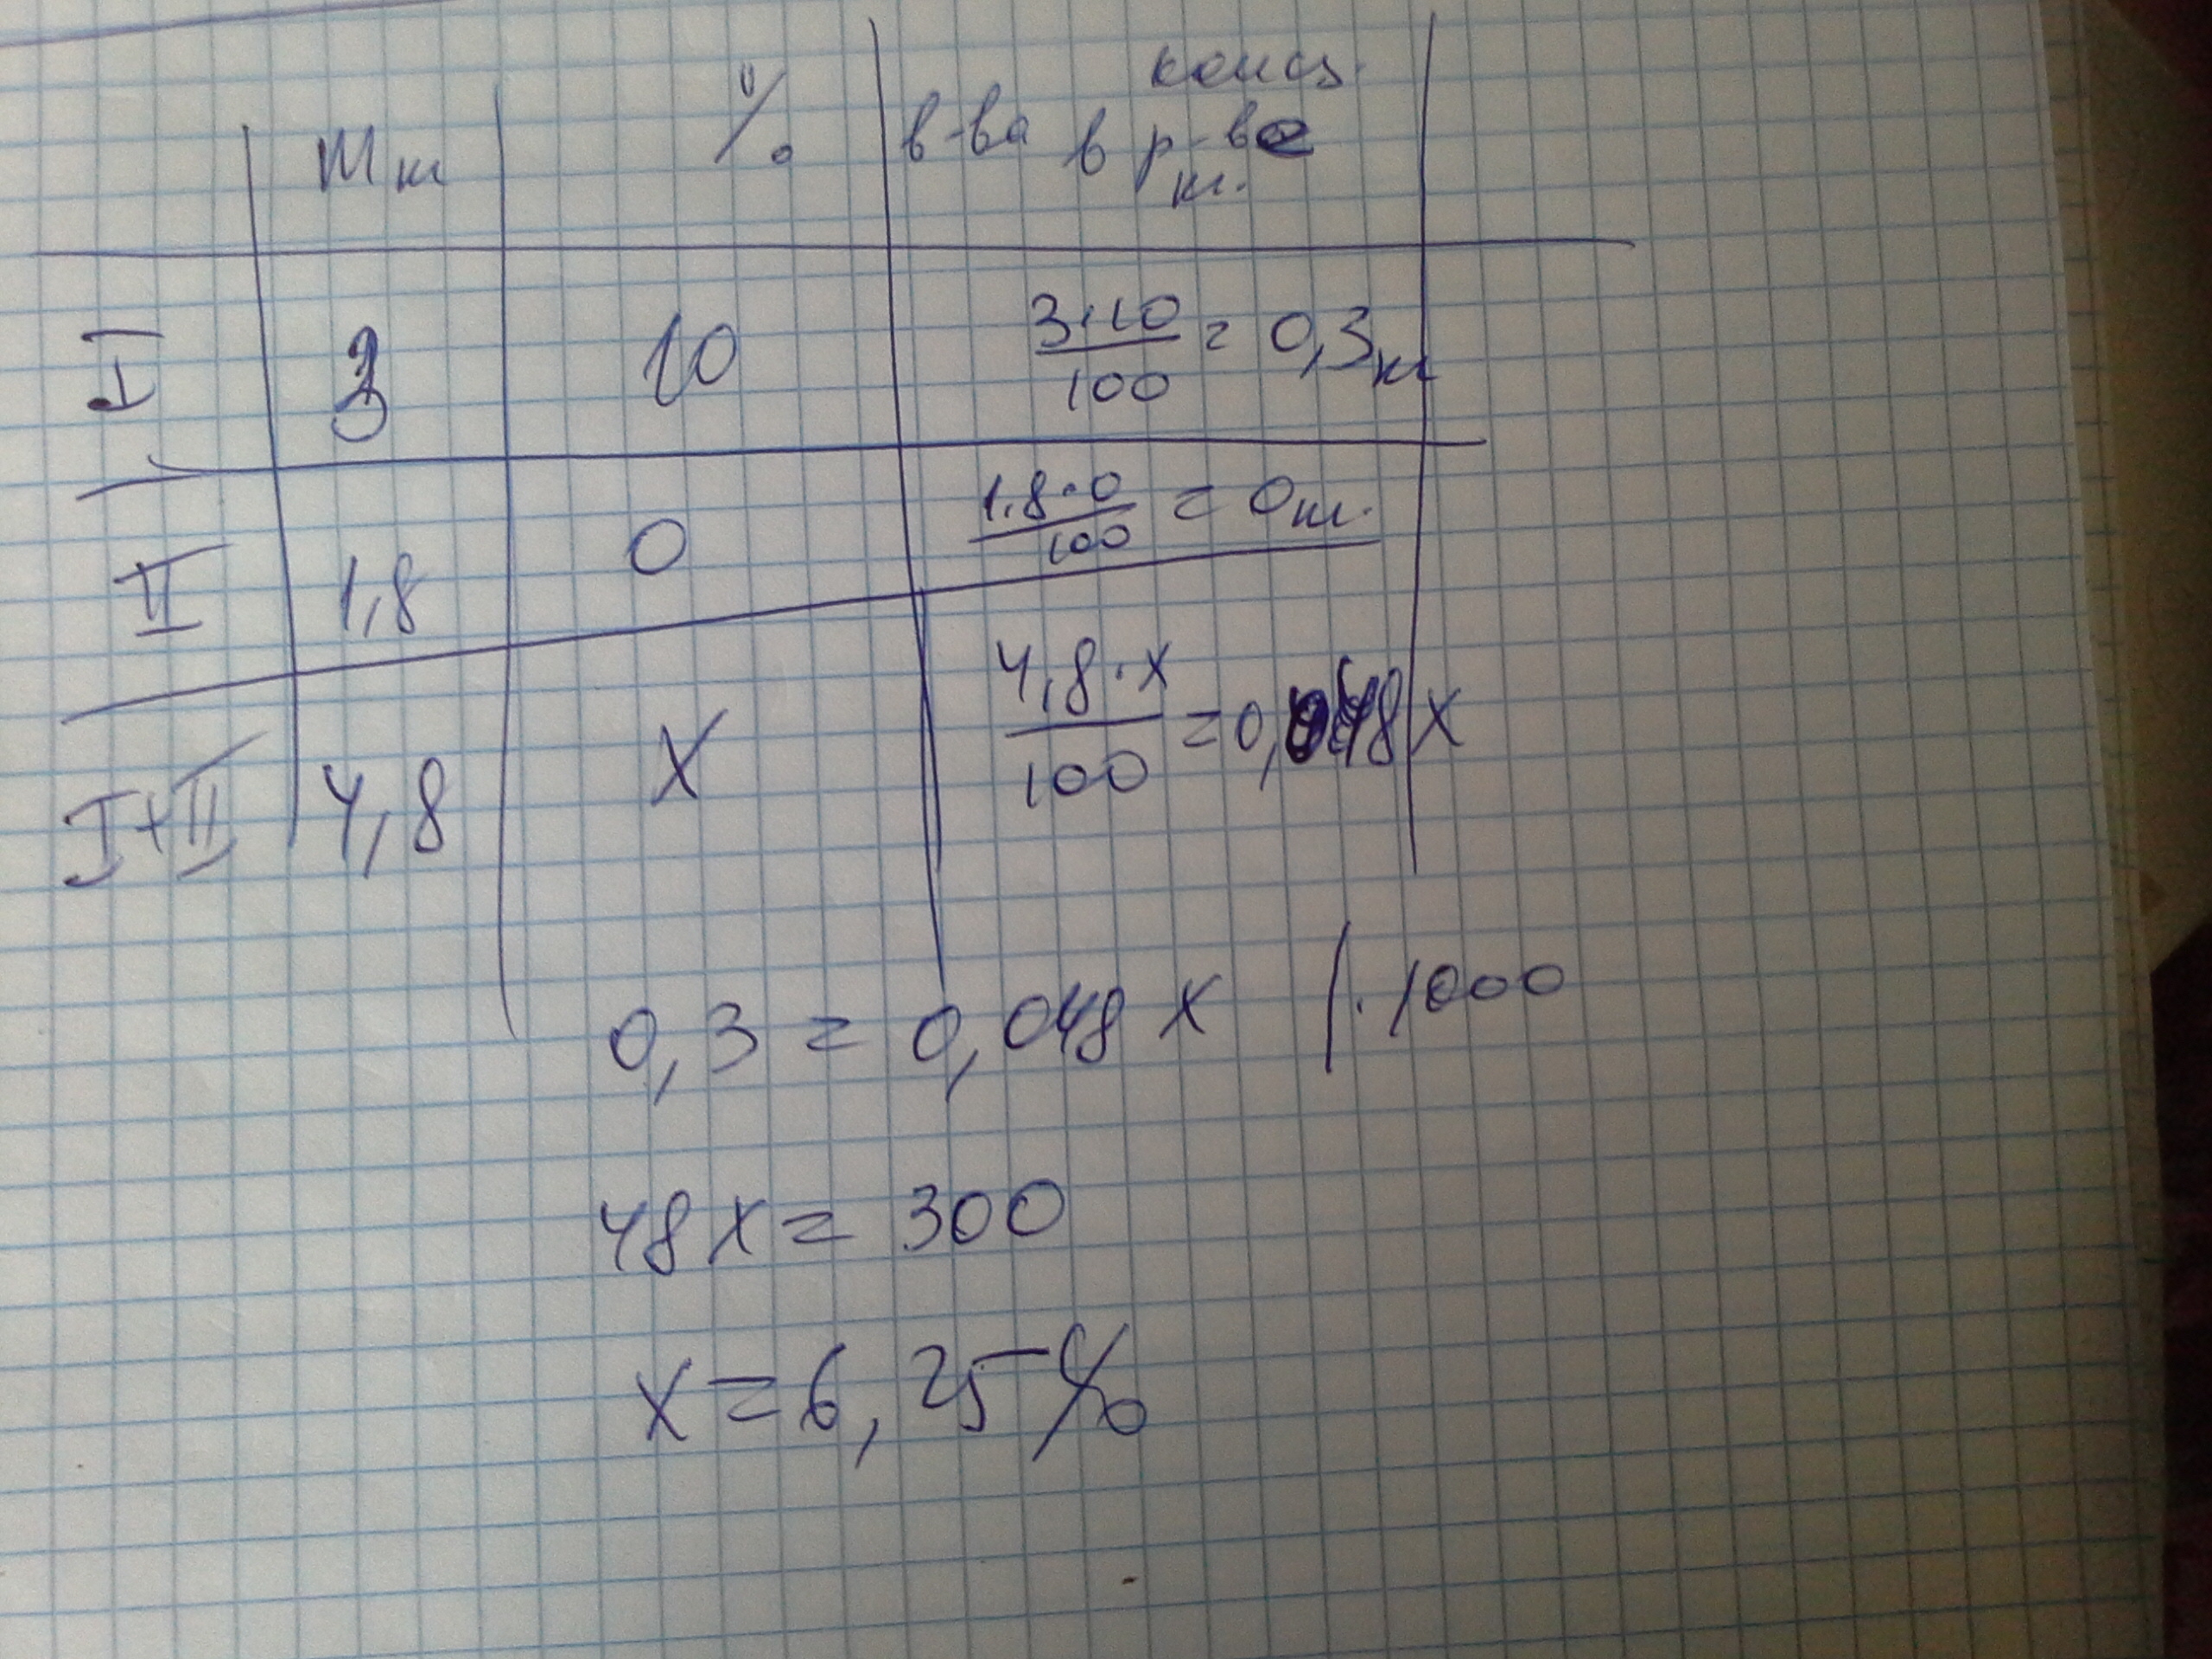 конц.
m кг % в-ва в р-ве
кг.
I 3 10 3·10/100 = 0,3 кг
II 1,8 0 1,8·0/100 = 0 кг.
I+II 4,8 x 4,8·x/100 = 0,048 x
0,3 = 0,048 x |·1000
48 x = 300
x = 6,25 %